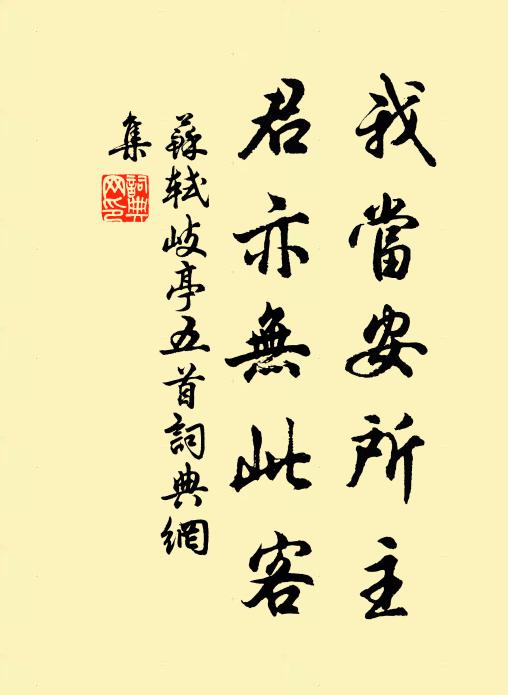 我當安所主
君亦無此客
蘇軾岐亭五首詞典網
集
詞典網印